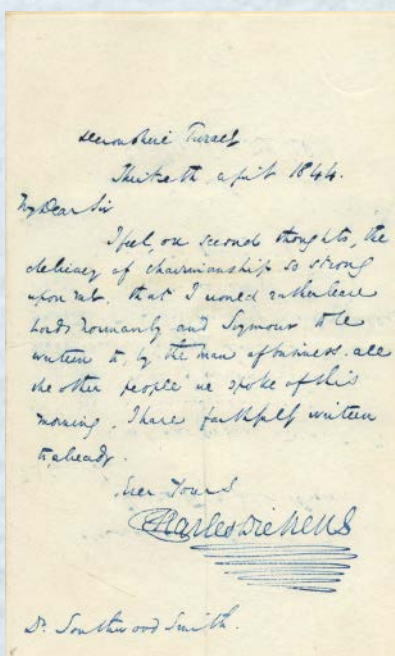 Devonshire Terrace
Thirtieth April 1844.
My Dear Sir
I feel, on second thoughts, the
delicacy of chairmanship so strong
upon me, that I would rather leave
Lords Normanby and Seymour to be
written to, by the man of business. All
the other people we spoke of this
morning, I have faithfully written
to, already.
Ever Yours
Charles Dickens
Dr. Southwood Smith.